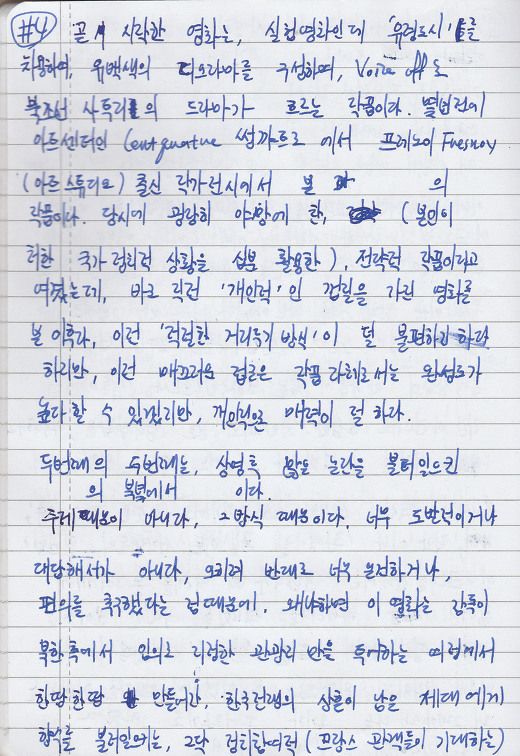 #4 곧 시작한 영화는, 실험영화인데 '유령도시'를
차용하여, 유백색의 디오라마를 구성하여, Voice off로
북조선 사투리의 드라마가 흐르는 작품이다. 몇년전에
아트센터인 Centquatre 썽까트르에서 프레노이 Fresnoy
(아트스튜디오) 출신 작가전시에서 본 의
작품이다. 당시에 굉장히 야망에 찬, (본인이
처한 국가정치적 상황을 십분 활용한), 전략적 작품이라고
여겼는데, 바로 직전 '개인적'인 결말을 가진 영화를
본 이후라, 이런 '적절한 거리두기 방식'이 덜 불편하긴 하다
하지만, 이런 매끄러운 접근은 작품 자체로서는 완성도가
높다 할 수 있겠지만, 개인적으론 매력이 덜 하다.
두번째의 두번째는, 상영 후 많은 논란을 불러일으킨
의 북녘에서 이다.
주제 때문이 아니라, 그 방식 때문이다, 너무 도발적이거나
대담해서가 아니라, 오히려 반대로 너무 온전하거나,
편의를 추구했다는 점 때문에. 왜냐하면 이 영화는 감독이
북한측에서 임의로 지정한 관광지만을 투어하는 여정에서
한땀한땀 만들어간, 한국전쟁의 상흔이 남은 세대에게
향수를 불러일으키는, 그닥 정치참여적 (프랑스 관객들이 기대하는)